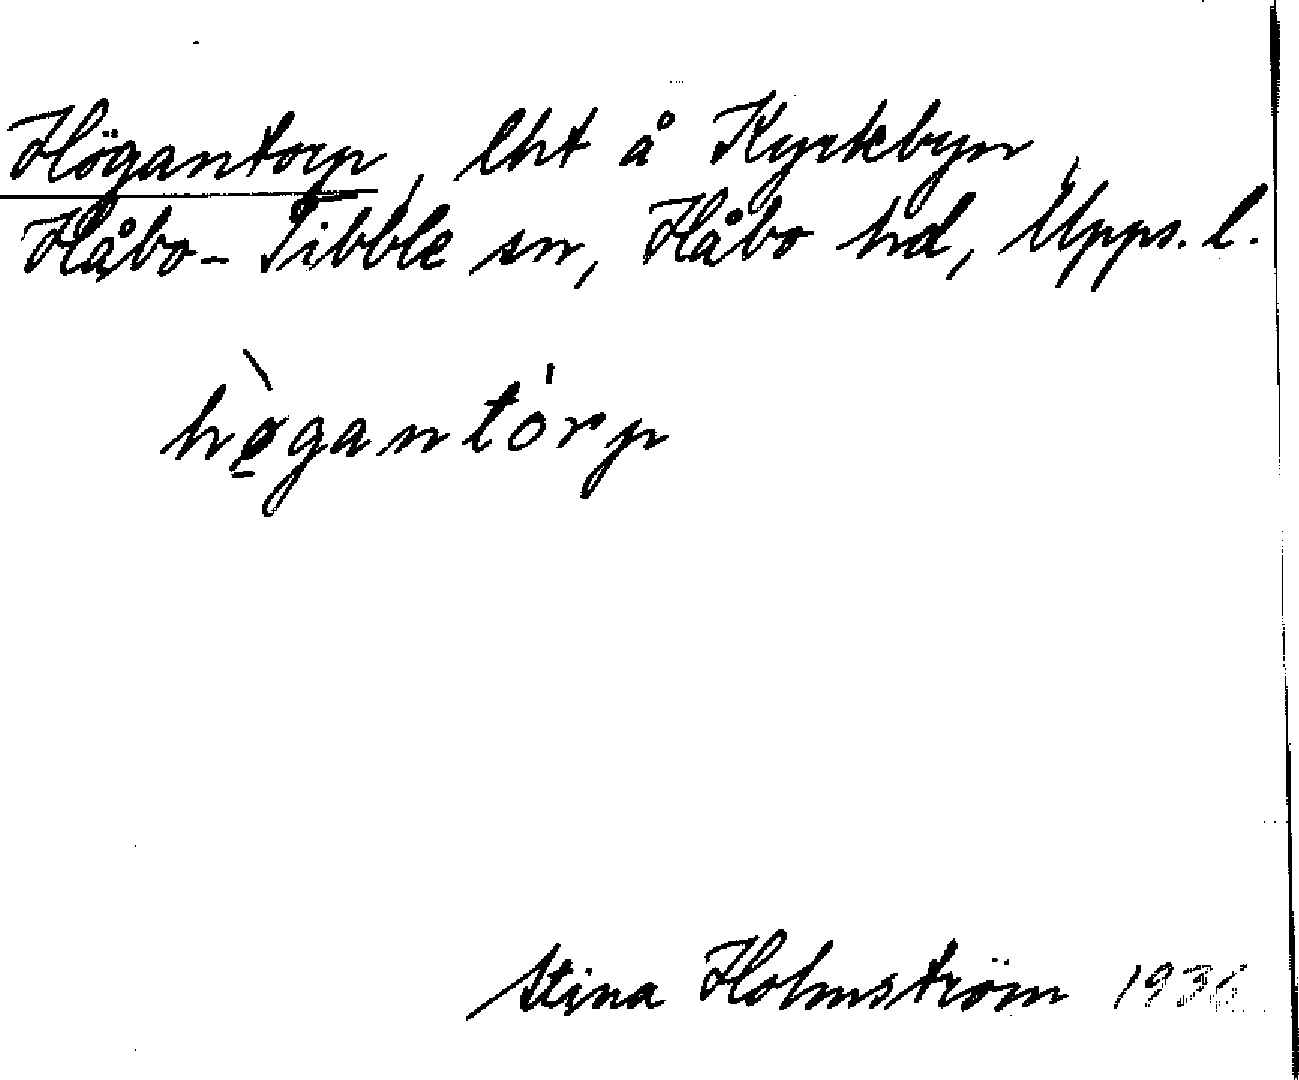 Högantorp, lht å Kyrkbyn,
Håbo-Tibble sn, Håbo hd, Upps. l.
hø̠̀gantórp
Stina Holmström 1936